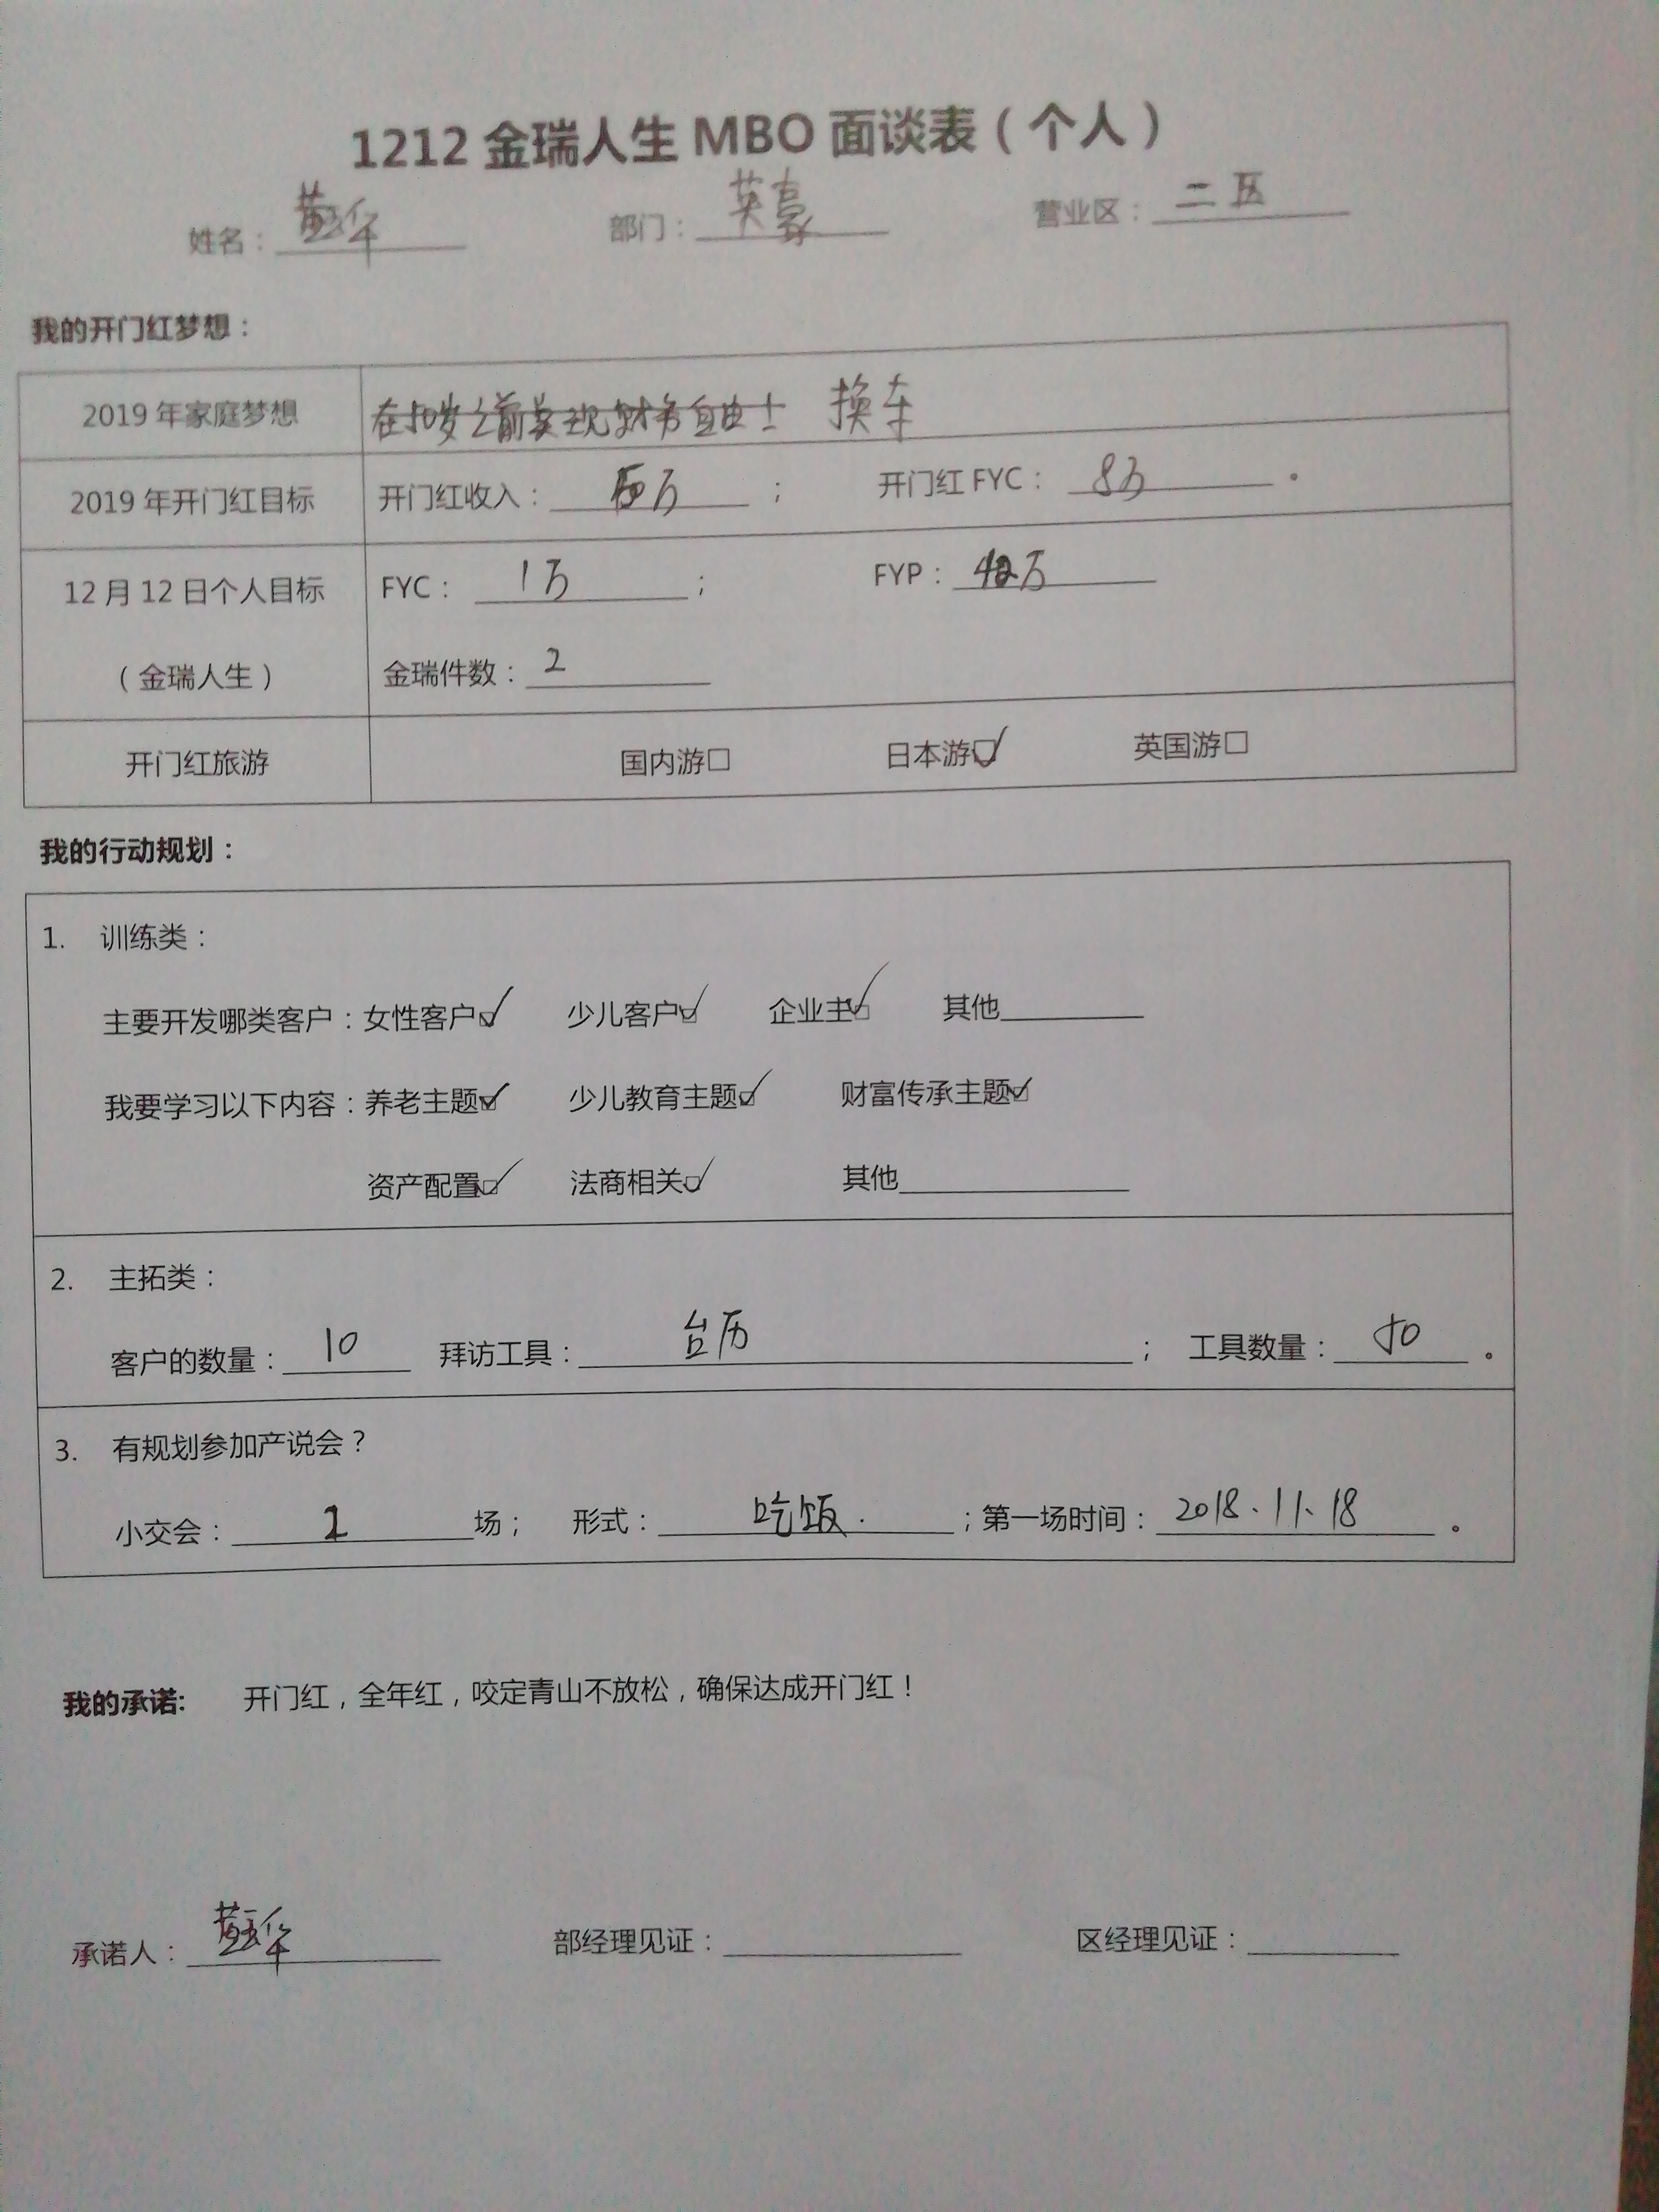 1212 金瑞人生 MBO 面谈表（个人）
姓名： 部门：英豪 营业区：二区
我的开门红梦想：
2019 年家庭梦想 在50岁之前实现财务自由 换车
2019 年开门红目标 开门红收入： 万； 开门红 FYC： 8万。
12 月 12 日个人目标 FYC： 1万； FYP： 万
（金瑞人生） 金瑞件数： 2
开门红旅游 国内游□ 日本游☑ 英国游□
我的行动规划：
1. 训练类：
主要开发哪类客户：女性客户☑ 少儿客户☑ 企业主☑ 其他
我要学习以下内容：养老主题☑ 少儿教育主题☑ 财富传承主题☑
资产配置☑ 法商相关☑ 其他
2. 主拓类：
客户的数量： 10 拜访工具： 台历； 工具数量： 50。
3. 有规划参加产说会？
小交会： 场； 形式： 吃饭.；第一场时间： 2018.11.18。
我的承诺: 开门红，全年红，咬定青山不放松，确保达成开门红！
承诺人： 部经理见证： 区经理见证：